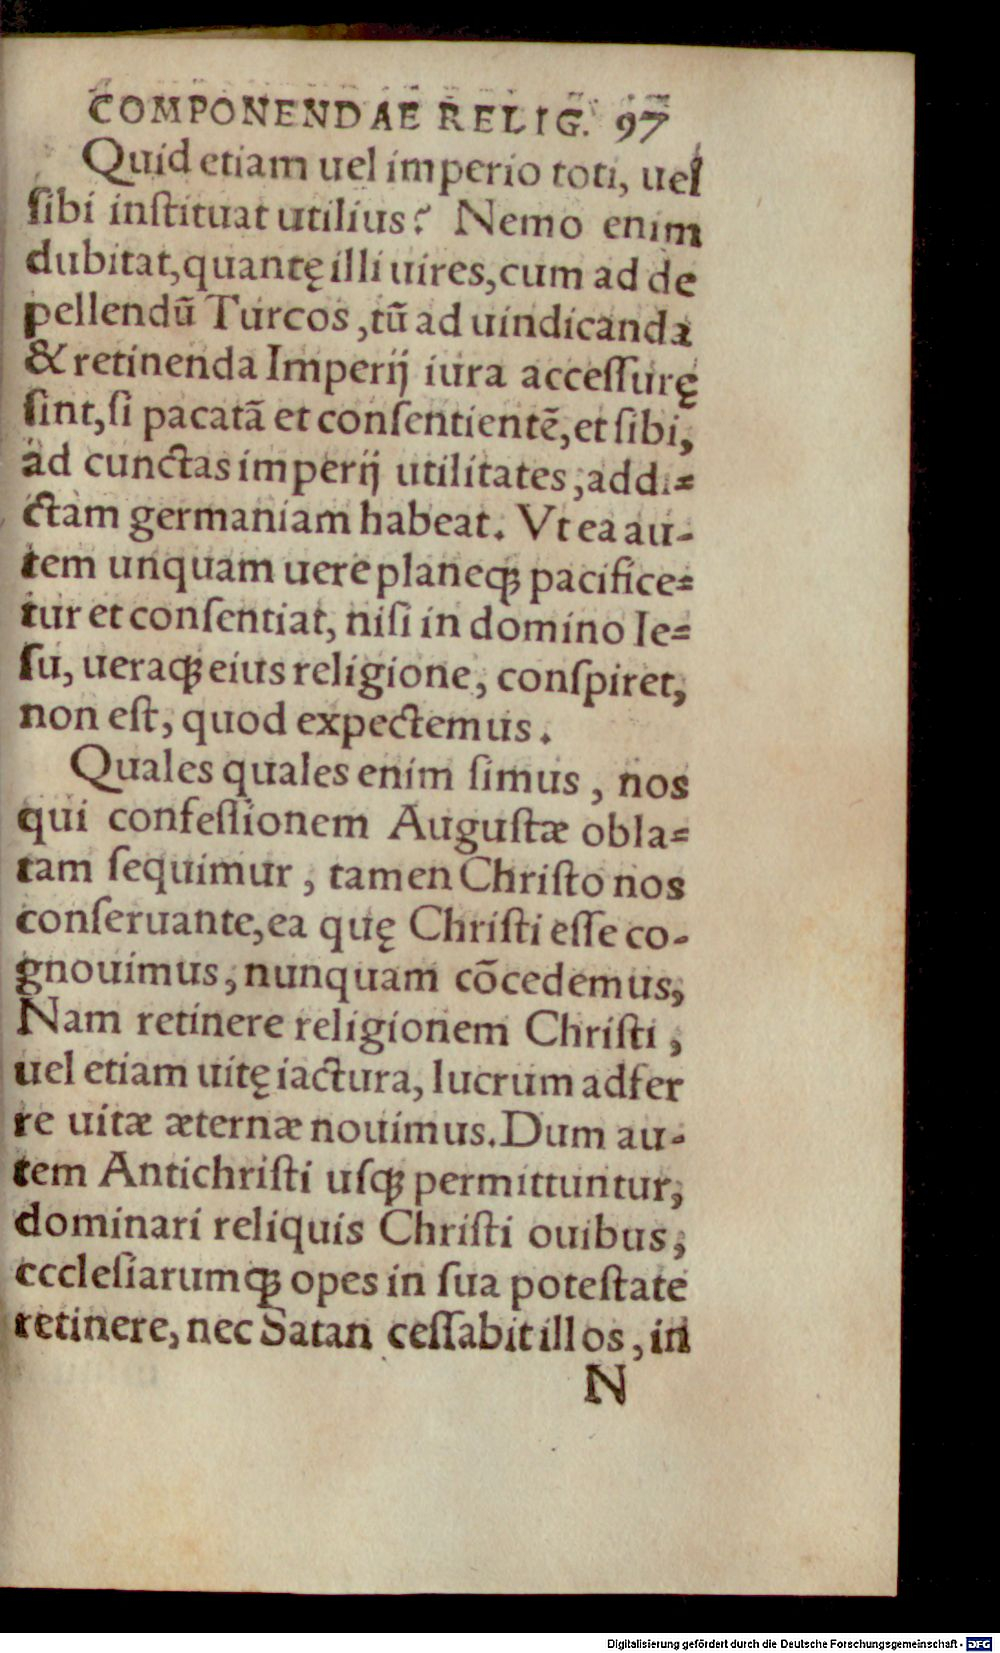 COMPONENDAE RELIG. 97
Quid etiam uel imperio toti, uel
ſibi inſtituat utilius? Nemo enim
dubitat, quantę illi uires, cum ad de
pellendũ Turcos, tũ ad uindicanda
& retinenda Imperij iura acceſſurę
ſint, ſi pacatã et conſentientẽ, et ſibi,
ad cunctas imperij utilitates, addi=
ctam germaniam habeat. Vt ea au-
tem unquam uere planeqꝫ pacifice=
tur et conſentiat, niſi in domino Ie=
ſu, ueraqꝫ eius religione, conſpiret,
non eſt, quod expectemus.
Quales quales enim ſimus, nos
qui confeſſionem Auguſtæ obla=
tam ſequimur, tamen Chriſto nos
conſeruante, ea quę Chriſti eſſe co-
gnouimus, nunquam cõcedemus,
Nam retinere religionem Chriſti,
uel etiam uitę iactura, lucrum adfer
re uitæ æternæ nouimus. Dum au-
tem Antichriſti uſqꝫ permittuntur,
dominari reliquis Chriſti ouibus,
eccleſiarumqꝫ opes in ſua poteſtate
retinere, nec Satan ceſſabit illos, in
N
Digitalisierung gefördert durch die Deutsche Forschungsgemeinschaft - DFG